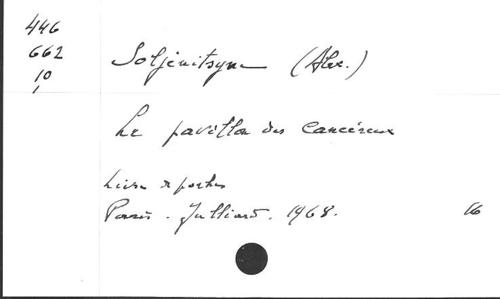 446
662
10
1
Soljenitsyne (Alex.)
Le pavillon des cancéreux
Livre de poches
Paris. Julliard. 1968.
16